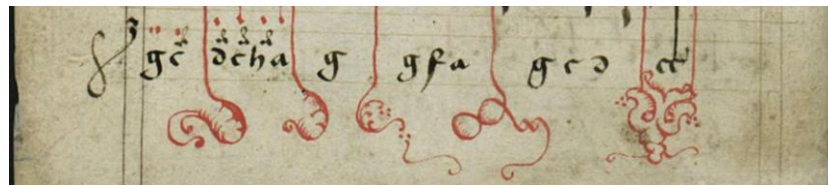 gc̄ dcha g gfa gcd cc